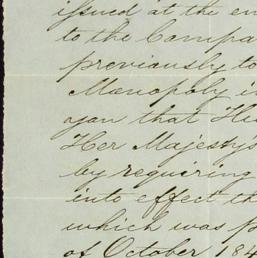 issued at the en
to the Compa
previously to
Monopoly i
upon that Hu
Her Majesty's
by requiring
into effect th
which was p
of October 184